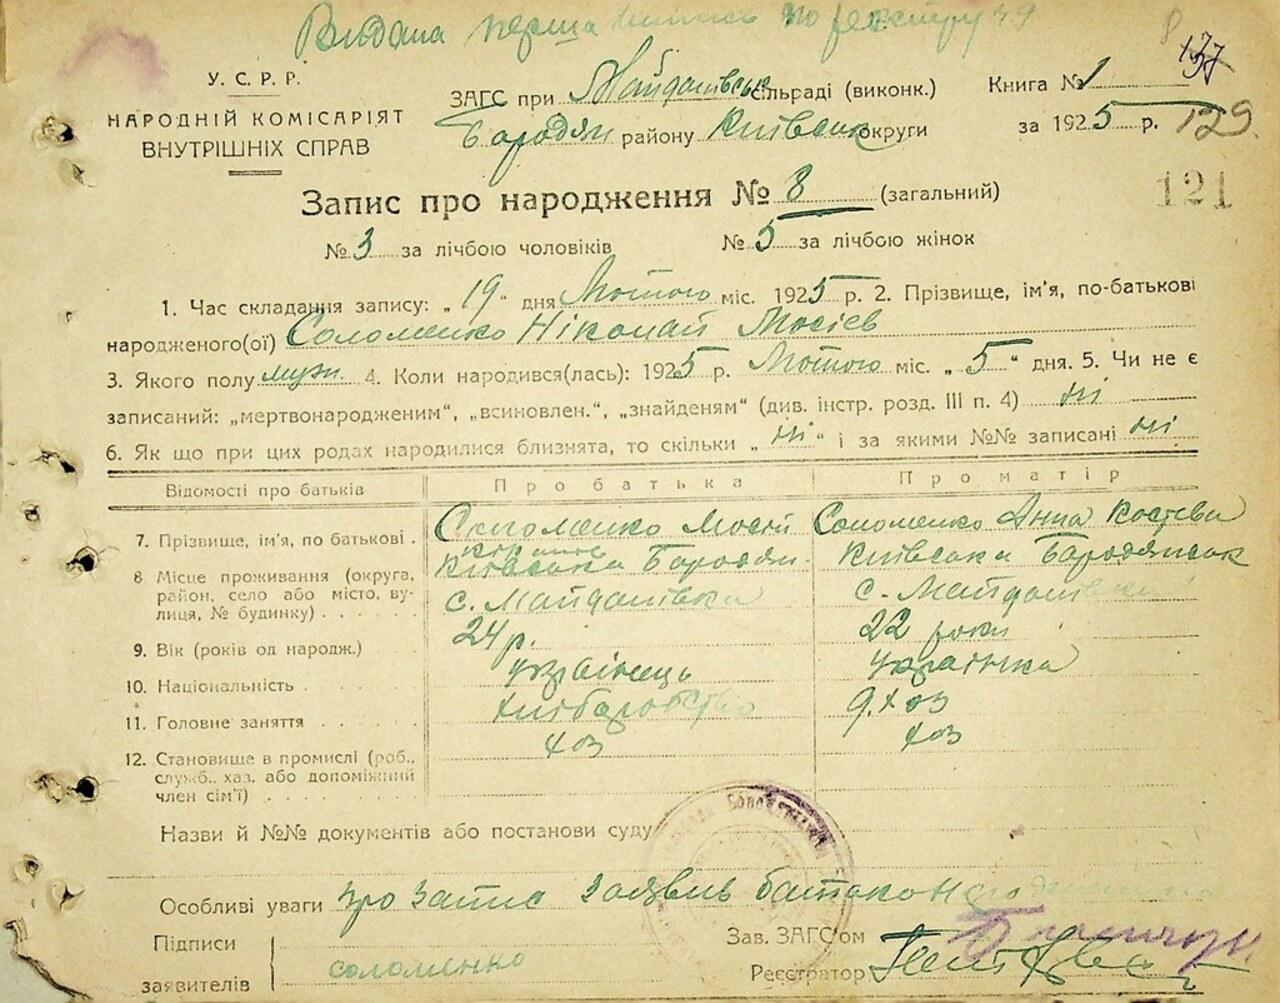 Видана перша виписъ по реєстру 49
У. С. Р. Р.
НАРОДНІЙ КОМІСАРІЯТ
ВНУТРІШНІХ СПРАВ
ЗАГС при Майданівськ сільраді (виконк.)
Бородян району Київськ округи
Книга № 1
за 1925 р.
129
121
Запис про народження № 8 (загальний)
№ 3 за лічбою чоловіків № 5 за лічбою жінок
1. Час складання запису: „19“ дня Лютого міс. 1925 р. 2. Прізвище, ім'я, по-батькові
народженого(ої) Соломенко Ніколай Мосієв
3. Якого полу муж. 4. Коли народився(лась): 1925 р. Лютого міс. „5“ дня. 5. Чи не є
записаний: „мертвонародженим“, „всиновлен.“, „знайденям“ (див. інстр. розд. III п. 4) ні
6. Як що при цих родах народилися близнята, то скільки „ні“ і за якими №№ записані ні
Відомості про батьків Про батька Про матір
7. Прізвище, ім'я, по батькові . Соломенко Мосій Соломенко Анна Костєва
8 Місце проживання (округа, район, село або місто, вулиця, № будинку) . . . . Київська Бородян. Київська Бородянськ
с. Майданівка с. Майданівка
9. Вік (років од народж.) 24 р. 22 роки
10. Національність українець українка
11. Головне заняття хліборобство
12. Становище в промислі (роб., служб., хаз. або допоміжний член сім'ї) хоз хоз
Назви й №№ документів або постанови суду
Особливі уваги про запис заявив батько
Підписи
заявителів
соломенко
Зав. ЗАГС'ом
Реєстратор